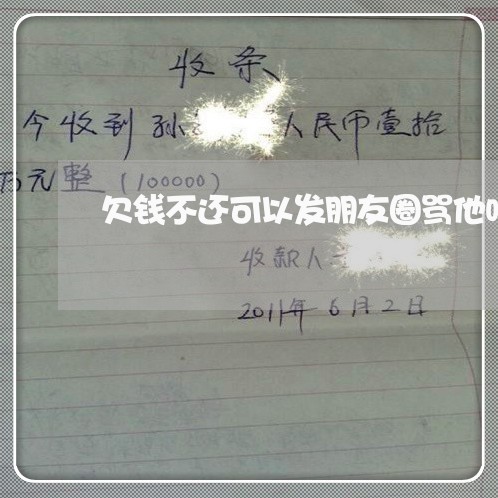 收条
今收到孙 人民币壹拾
万元整(100000)
欠钱不还可以发朋友圈骂他
收款人
2011年6月2日